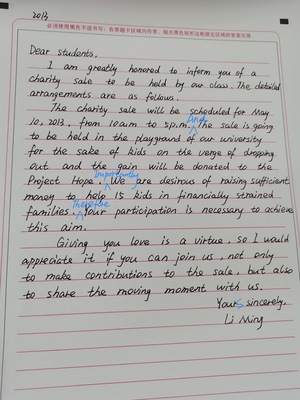 2013
必须使用黑色字迹书写,在答题卡区域内作答,超出黑色矩形边框限定区域的答案无效
Dear students,
I am greatly honored to inform you of a
charity sale to be held by our class. The detailed
arrangements are as follows.
The charity sale will be scheduled for May
And
10, 2013, from 10am to 5p.m. The sale is going
to be held in the playground of our university
for the sake of kids on the verge of dropping
out and the gain will be donated to the
Importantly
Project Hope. We are desirous of raising sufficient
money to help 15 kids in financially strained
Therefore
families. Your participation is necessary to achieve
this aim.
Giving you love is a virtue, so I would
appreciate it if you can join us, not only
to make contributions to the sale, but also
to share the moving moment with us.
Yours sincerely,
Li Ming